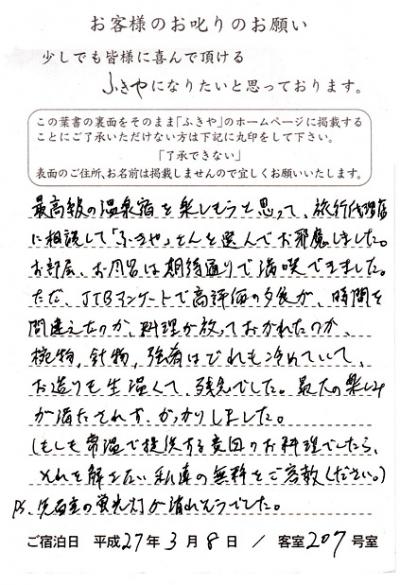 お客様のお叱りのお願い
少しでも皆様に喜んで頂ける
ふきやになりたいと思っております。
この葉書の裏面をそのまま「ふきや」のホームページに掲載する
ことにご了承いただけない方は下記に丸印をして下さい。
「了承できない」
表面のご住所、お名前は掲載しませんので宜しくお願いいたします。
最高級の温泉宿を楽しもうと思って、旅行代理店
に相談して「ふきや」さんを選んでお邪魔しました。
お部屋、お風呂は期待通りで満喫できました。
ただ、JTBアンケートで高評価の夕食が、時間を
間違えたのか、料理が放っておかれたのか、
椀物、針物、強肴はどれも冷めていて、
お造りも生温くて、残念でした。最大の楽しみ
が満たされず、がっかりしました。
(もしも常温で提供する意図のお料理でしたら、
それを解さない私達の無粋をご容赦ください。)
PS. 洗面室の蛍光灯が潰れそうでした。
ご宿泊日 平成27年3月8日 / 客室207号室